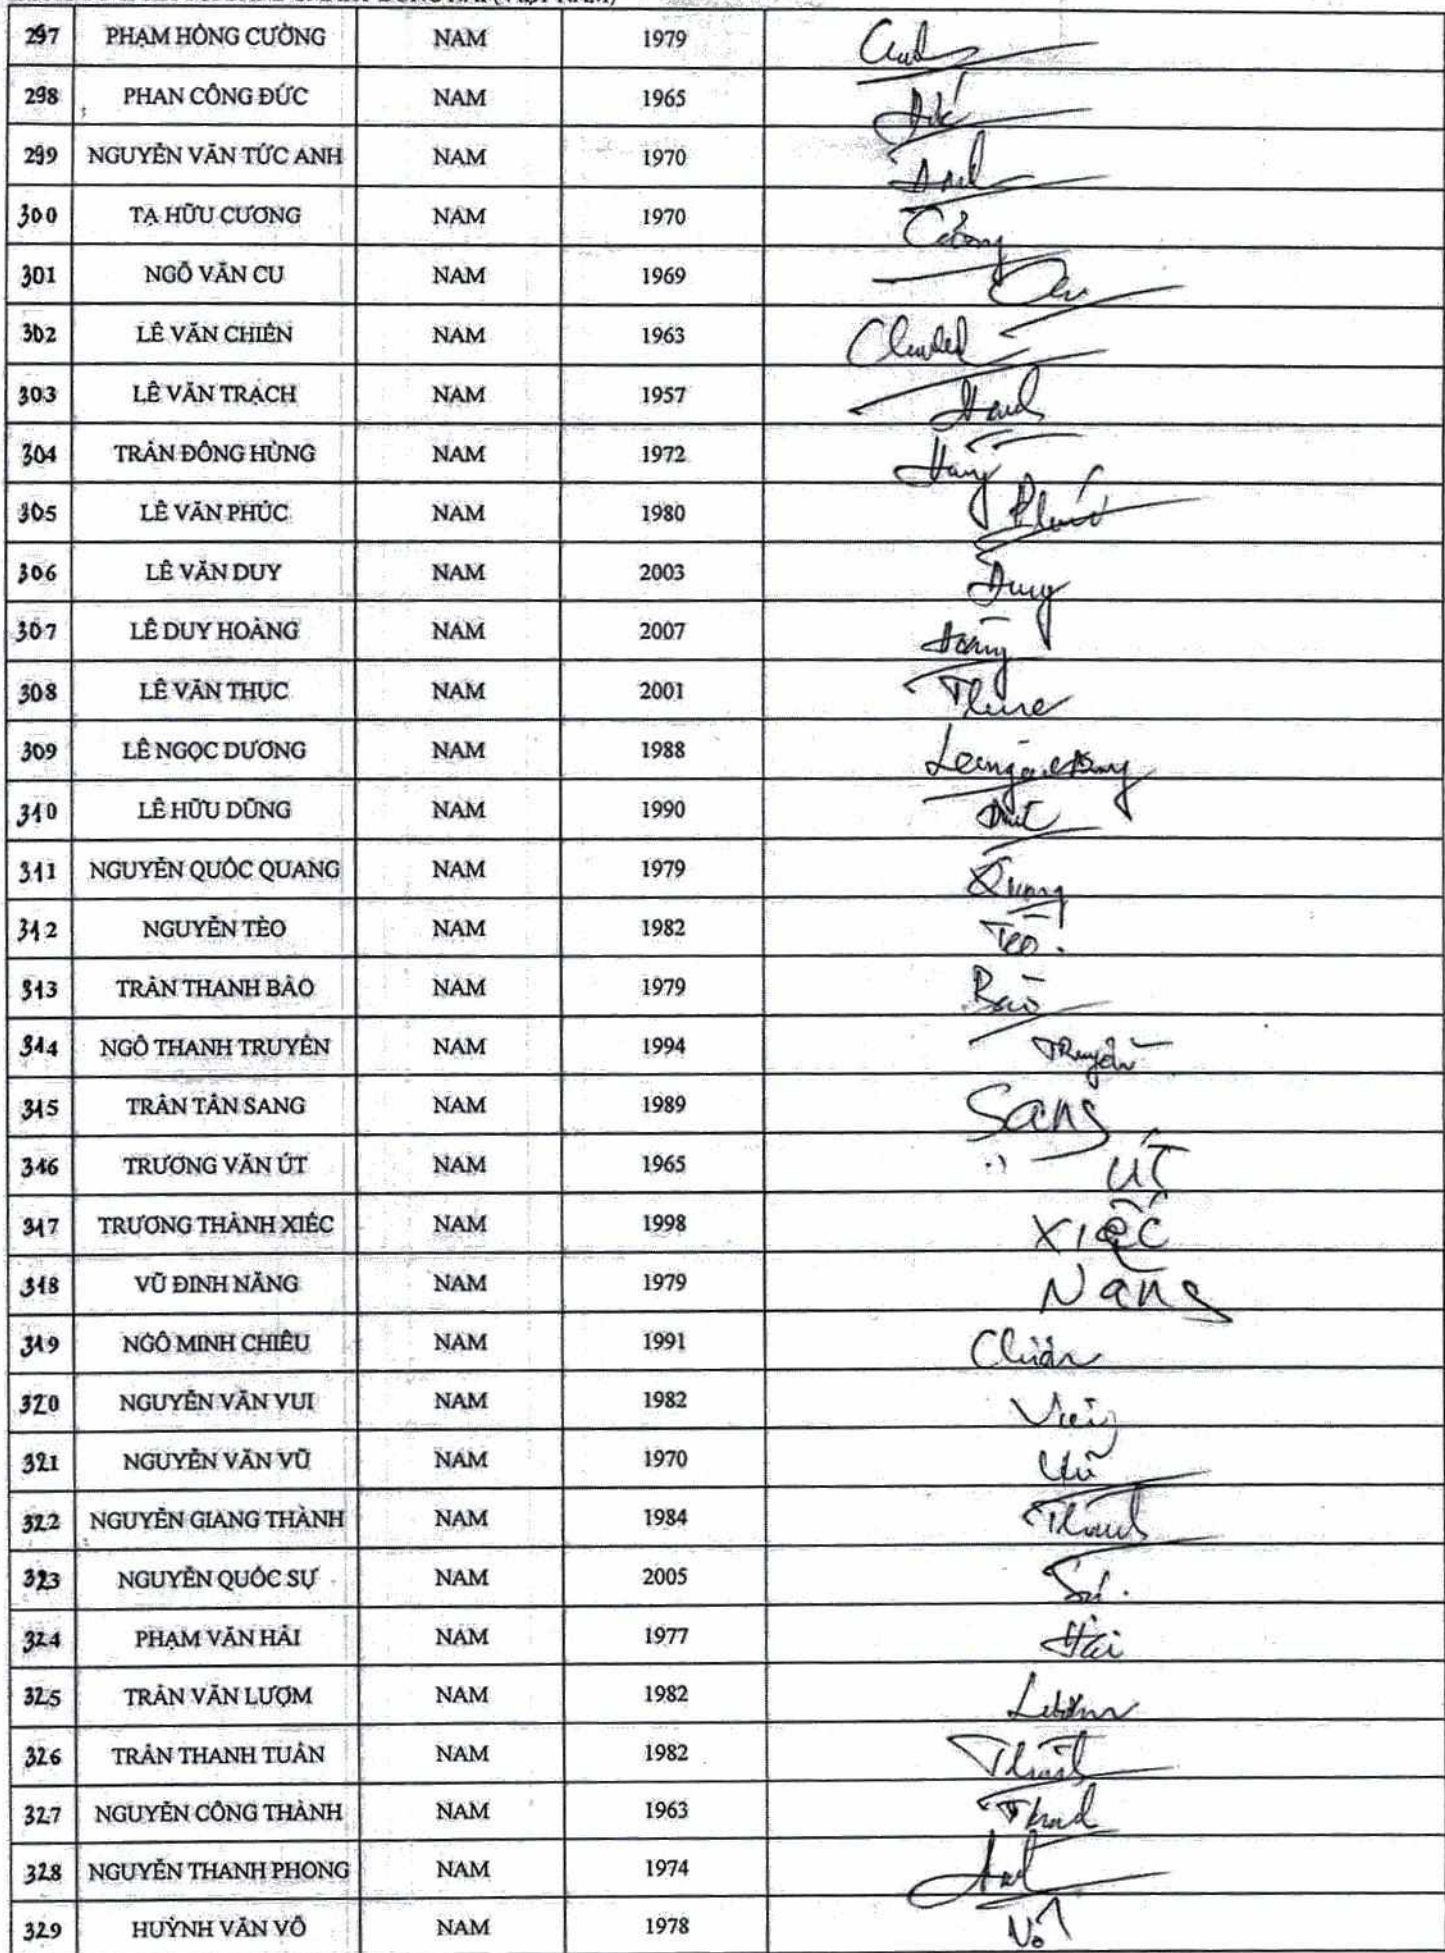 297 PHẠM HỒNG CƯỜNG NAM 1979
298 PHAN CÔNG ĐỨC NAM 1965 Đức
299 NGUYỄN VĂN TỨC ANH NAM 1970
300 TẠ HỮU CƯƠNG NAM 1970 Cương
301 NGÔ VĂN CU NAM 1969 Cu
302 LÊ VĂN CHIẾN NAM 1963
303 LÊ VĂN TRẠCH NAM 1957
304 TRẦN ĐÔNG HÙNG NAM 1972 Hùng
305 LÊ VĂN PHÚC NAM 1980 Phúc
306 LÊ VĂN DUY NAM 2003 Duy
307 LÊ DUY HOÀNG NAM 2007 Hoàng
308 LÊ VĂN THỤC NAM 2001 Thục
309 LÊ NGỌC DƯƠNG NAM 1988
310 LÊ HỮU DŨNG NAM 1990
311 NGUYỄN QUỐC QUANG NAM 1979 Quang
312 NGUYỄN TÈO NAM 1982 Tèo
313 TRẦN THANH BẢO NAM 1979 Bảo
314 NGÔ THANH TRUYỀN NAM 1994 Truyền
315 TRẦN TẤN SANG NAM 1989 Sang
316 TRƯƠNG VĂN ÚT NAM 1965 ÚT
317 TRƯƠNG THÀNH XIẾC NAM 1998 XIẾC
318 VŨ ĐÌNH NĂNG NAM 1979 Năng
319 NGÔ MINH CHIÊU NAM 1991
320 NGUYỄN VĂN VUI NAM 1982 Vui
321 NGUYỄN VĂN VŨ NAM 1970 Vũ
322 NGUYỄN GIANG THÀNH NAM 1984 Thành
323 NGUYỄN QUỐC SỰ NAM 2005
324 PHẠM VĂN HẢI NAM 1977 Hải
325 TRẦN VĂN LƯỢM NAM 1982 Lượm
326 TRẦN THANH TUẤN NAM 1982
327 NGUYỄN CÔNG THÀNH NAM 1963
328 NGUYỄN THANH PHONG NAM 1974
329 HUỲNH VĂN VÔ NAM 1978 Vô